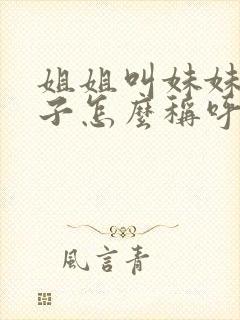 姐姐叫妹妹
子怎麼稱呼
風言青